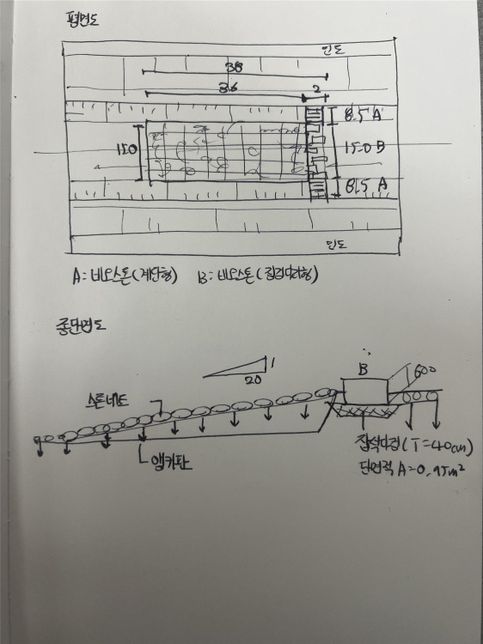 평면도
인도
38
36
2
8.5 A
15.0
15.0 B
8.5 A
인도
A: 비오스톤(계단형) B: 비오스톤(징검다리형)
종단면도
1
20
B
600
스톤네트
앵커핀
잡석다짐(T=40cm)
단면적 A=0.95m²